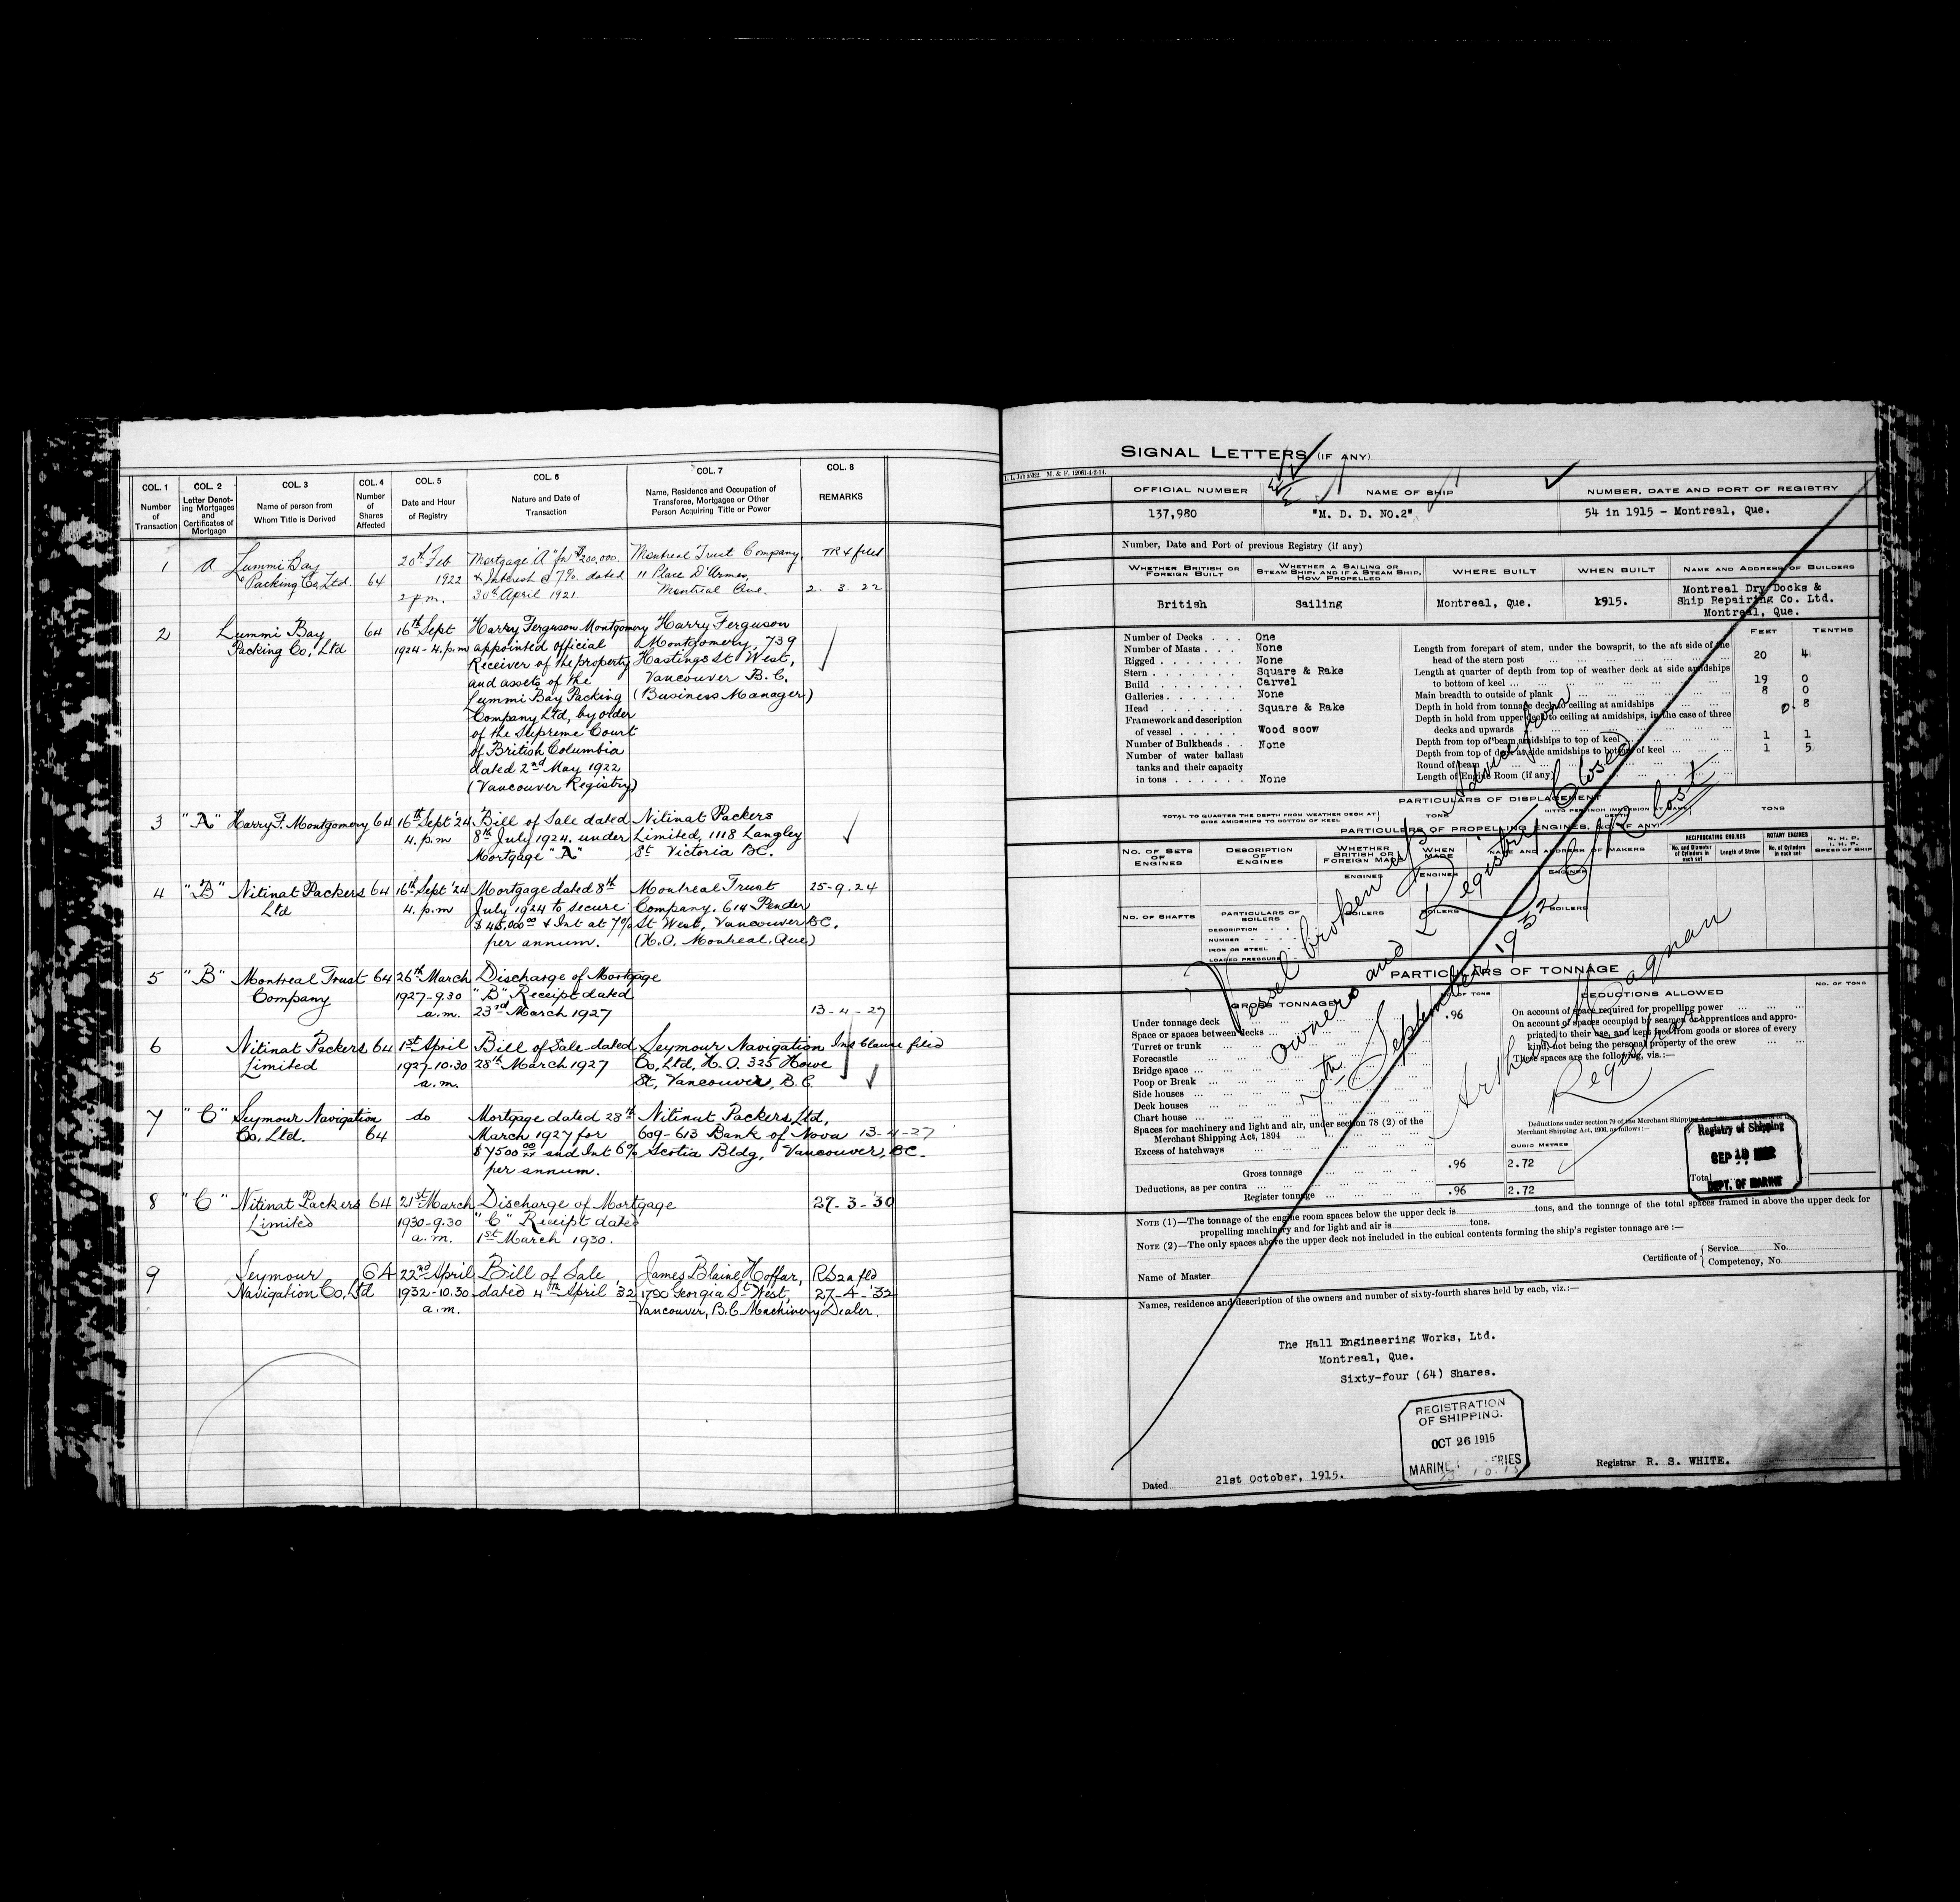 COL. 1
Number
of
Transaction
COL. 2
Letter Denot-
ing Mortgages
and
Certificates of
Mortgage
COL. 3
Name of person from
Whom Title is Derived
COL. 4
Number
of
Shares
Affected
COL. 5
Date and Hour
of Registry
COL. 6
Nature and Date of
Transaction
COL. 7
Name, Residence and Occupation of
Transferee, Mortgagee or Other
Person Acquiring Title or Power
COL. 8
REMARKS
1 A Lummi Bay 20th Feb Mortgage "A" for $200,000. Montreal Trust Company,
Packing Co, Ltd. 64 1922 & Interest @ 7%. dated 11 Place D'Armes,
2 p.m. 30th April 1921. Montreal Que. 2. 3. 22
2 Lummi Bay 64 16th Sept Harry Ferguson Montgomery Harry Ferguson
Packing Co, Ltd 1924-4.p.m appointed official Montgomery, 739
Receiver of the property Hastings St West,
and assets of the Vancouver B.C.
Lummi Bay Packing (Business Manager)
Company Ltd, by order
of the Supreme Court
of British Columbia
dated 2nd May 1922
(Vancouver Registry)
3 "A" Harry F. Montgomery 64 16th Sept '24 Bill of Sale dated Nitinat Packers
4. p.m 8th July 1924. under Limited, 1118 Langley
Mortgage "A" St Victoria BC.
4 "B" Nitinat Packers 64 16th Sept '24 Mortgage dated 8th Montreal Trust 25-9.24
Ltd 4. p.m July 1924 to secure Company. 614 Pender
$45,000.00 & Int at 7% St West, Vancouver BC.
per annum. (H.O. Montreal. Que)
5 "B" Montreal Trust 64 26th March Discharge of Mortgage
Company 1927-9.30 "B" Receipt dated
a.m. 23rd March 1927 13-4-27
6 Nitinat Packers 64 1st April Bill of Sale dated Seymour Navigation Ins Clause filed
Limited 1927-10.30 28th March 1927 Co, Ltd, H.O. 325 Howe
a.m. St, Vancouver, B.C.
7 "C" Seymour Navigation do Mortgage dated 28th Nitinat Packers, Ltd,
Co, Ltd. 64 March 1927 for 609-613 Bank of Nova 13-4-27
$7500.00 and Int 6% Scotia Bldg, Vancouver, BC.
per annum.
8 "C" Nitinat Packers 64 21st March Discharge of Mortgage 27-3-30
Limited 1930-9.30 "C" Receipt dated
a.m. 1st March 1930.
9 Seymour 64 22nd April Bill of Sale James Blaine Hoffar,
Navigation Co, Ltd 1932-10.30 dated 4th April '32 1790 Georgia St West, 27-4-'32
a.m. Vancouver, B.C Machinery Dealer.
SIGNAL LETTERS (IF ANY)
OFFICIAL NUMBER
NAME OF SHIP
NUMBER, DATE AND PORT OF REGISTRY
137,980 "M. D. D. NO.2" 54 in 1915 - Montreal, Que.
Number, Date and Port of previous Registry (if any)
WHETHER BRITISH OR
FOREIGN BUILT
WHETHER A SAILING OR
STEAM SHIP; AND IF A STEAM SHIP,
HOW PROPELLED
WHERE BUILT
WHEN BUILT
NAME AND ADDRESS OF BUILDERS
British Sailing Montreal, Que. 1915.
Montreal Dry Docks &
Ship Repairing Co. Ltd.
Montreal, Que.
FEET TENTHS
Number of Decks . . . One
Number of Masts . . . None
Rigged . . . None
Stern . . . Square & Rake
Build . . . Carvel
Galleries . . . None
Head . . . Square & Rake
Framework and description
of vessel . . . Wood scow
Number of Bulkheads . . None
Number of water ballast
tanks and their capacity
in tons . . . None
Length from forepart of stem, under the bowsprit, to the aft side of the
head of the stern post 20 4
Length at quarter of depth from top of weather deck at side amidships
to bottom of keel 19 0
Main breadth to outside of plank 8 0
Depth in hold from tonnage deck to ceiling at amidships 0. 8
Depth in hold from upper deck to ceiling at amidships, in the case of three
decks and upwards
Depth from top of beam amidships to top of keel 1 1
Depth from top of deck at side amidships to bottom of keel 1 5
Round of beam
Length of Engine Room (if any)
PARTICULARS OF DISPLACEMENT
TOTAL TO QUARTER THE DEPTH FROM WEATHER DECK AT
SIDE AMIDSHIPS TO BOTTOM OF KEEL
TONS
TONS
PARTICULARS OF PROPELLING ENGINES, &C. (IF ANY)
NO. OF SETS
OF
ENGINES
DESCRIPTION
OF
ENGINES
WHETHER
BRITISH OR
FOREIGN MADE
WHEN
MADE
NAME AND ADDRESS OF MAKERS
RECIPROCATING ENGINES
No. and Diameter
of Cylinders in
each set
Length of Stroke
ROTARY ENGINES
No. of Cylinders
in each set
N. H. P.
I. H. P.
SPEED OF SHIP
ENGINES ENGINES ENGINES
NO. OF SHAFTS
PARTICULARS OF
BOILERS
BOILERS BOILERS BOILERS
DESCRIPTION
NUMBER
IRON OR STEEL
LOADED PRESSURE
Vessel broken up. Advice from
owners and Registry Closed
7th September 1932
Arthur
Registrar
PARTICULARS OF TONNAGE
GROSS TONNAGE
NO. OF TONS
DEDUCTIONS ALLOWED
NO. OF TONS
Under tonnage deck .96
Space or spaces between decks
Turret or trunk
Forecastle
Bridge space
Poop or Break
Side houses
Deck houses
Chart house
Spaces for machinery and light and air, under section 78 (2) of the
Merchant Shipping Act, 1894
Excess of hatchways
On account of space required for propelling power
On account of spaces occupied by seamen or apprentices and appro-
priated to their use, and kept free from goods or stores of every
kind, not being the personal property of the crew
These spaces are the following, vis.:—
CUBIC METRES
Gross tonnage .96 2.72
Deductions, as per contra
Register tonnage .96 2.72
Total
Registry of Shipping
DEPT. OF MARINE
NOTE (1)—The tonnage of the engine room spaces below the upper deck is tons, and the tonnage of the total spaces framed in above the upper deck for
propelling machinery and for light and air is tons.
NOTE (2)—The only spaces above the upper deck not included in the cubical contents forming the ship's register tonnage are :—
Name of Master
Certificate of { Service No.
Competency, No.
Names, residence and description of the owners and number of sixty-fourth shares held by each, viz.:—
The Hall Engineering Works, Ltd.
Montreal, Que.
Sixty-four (64) Shares.
REGISTRATION
OF SHIPPING.
OCT 26 1915
Dated 21st October, 1915.
Registrar R. S. WHITE.